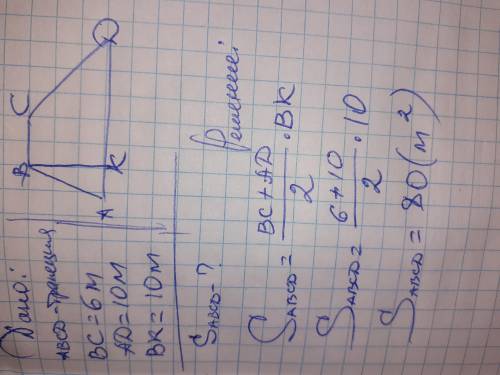 Дано:
ABCD-трапеция
BC=6м
AD=10м
BK=10м
S_ABCD-?
B C
A K D
Решение:
S_ABCD = (BC+AD)/2 · BK
S_ABCD = (6+10)/2 · 10
S_ABCD = 80(м²)